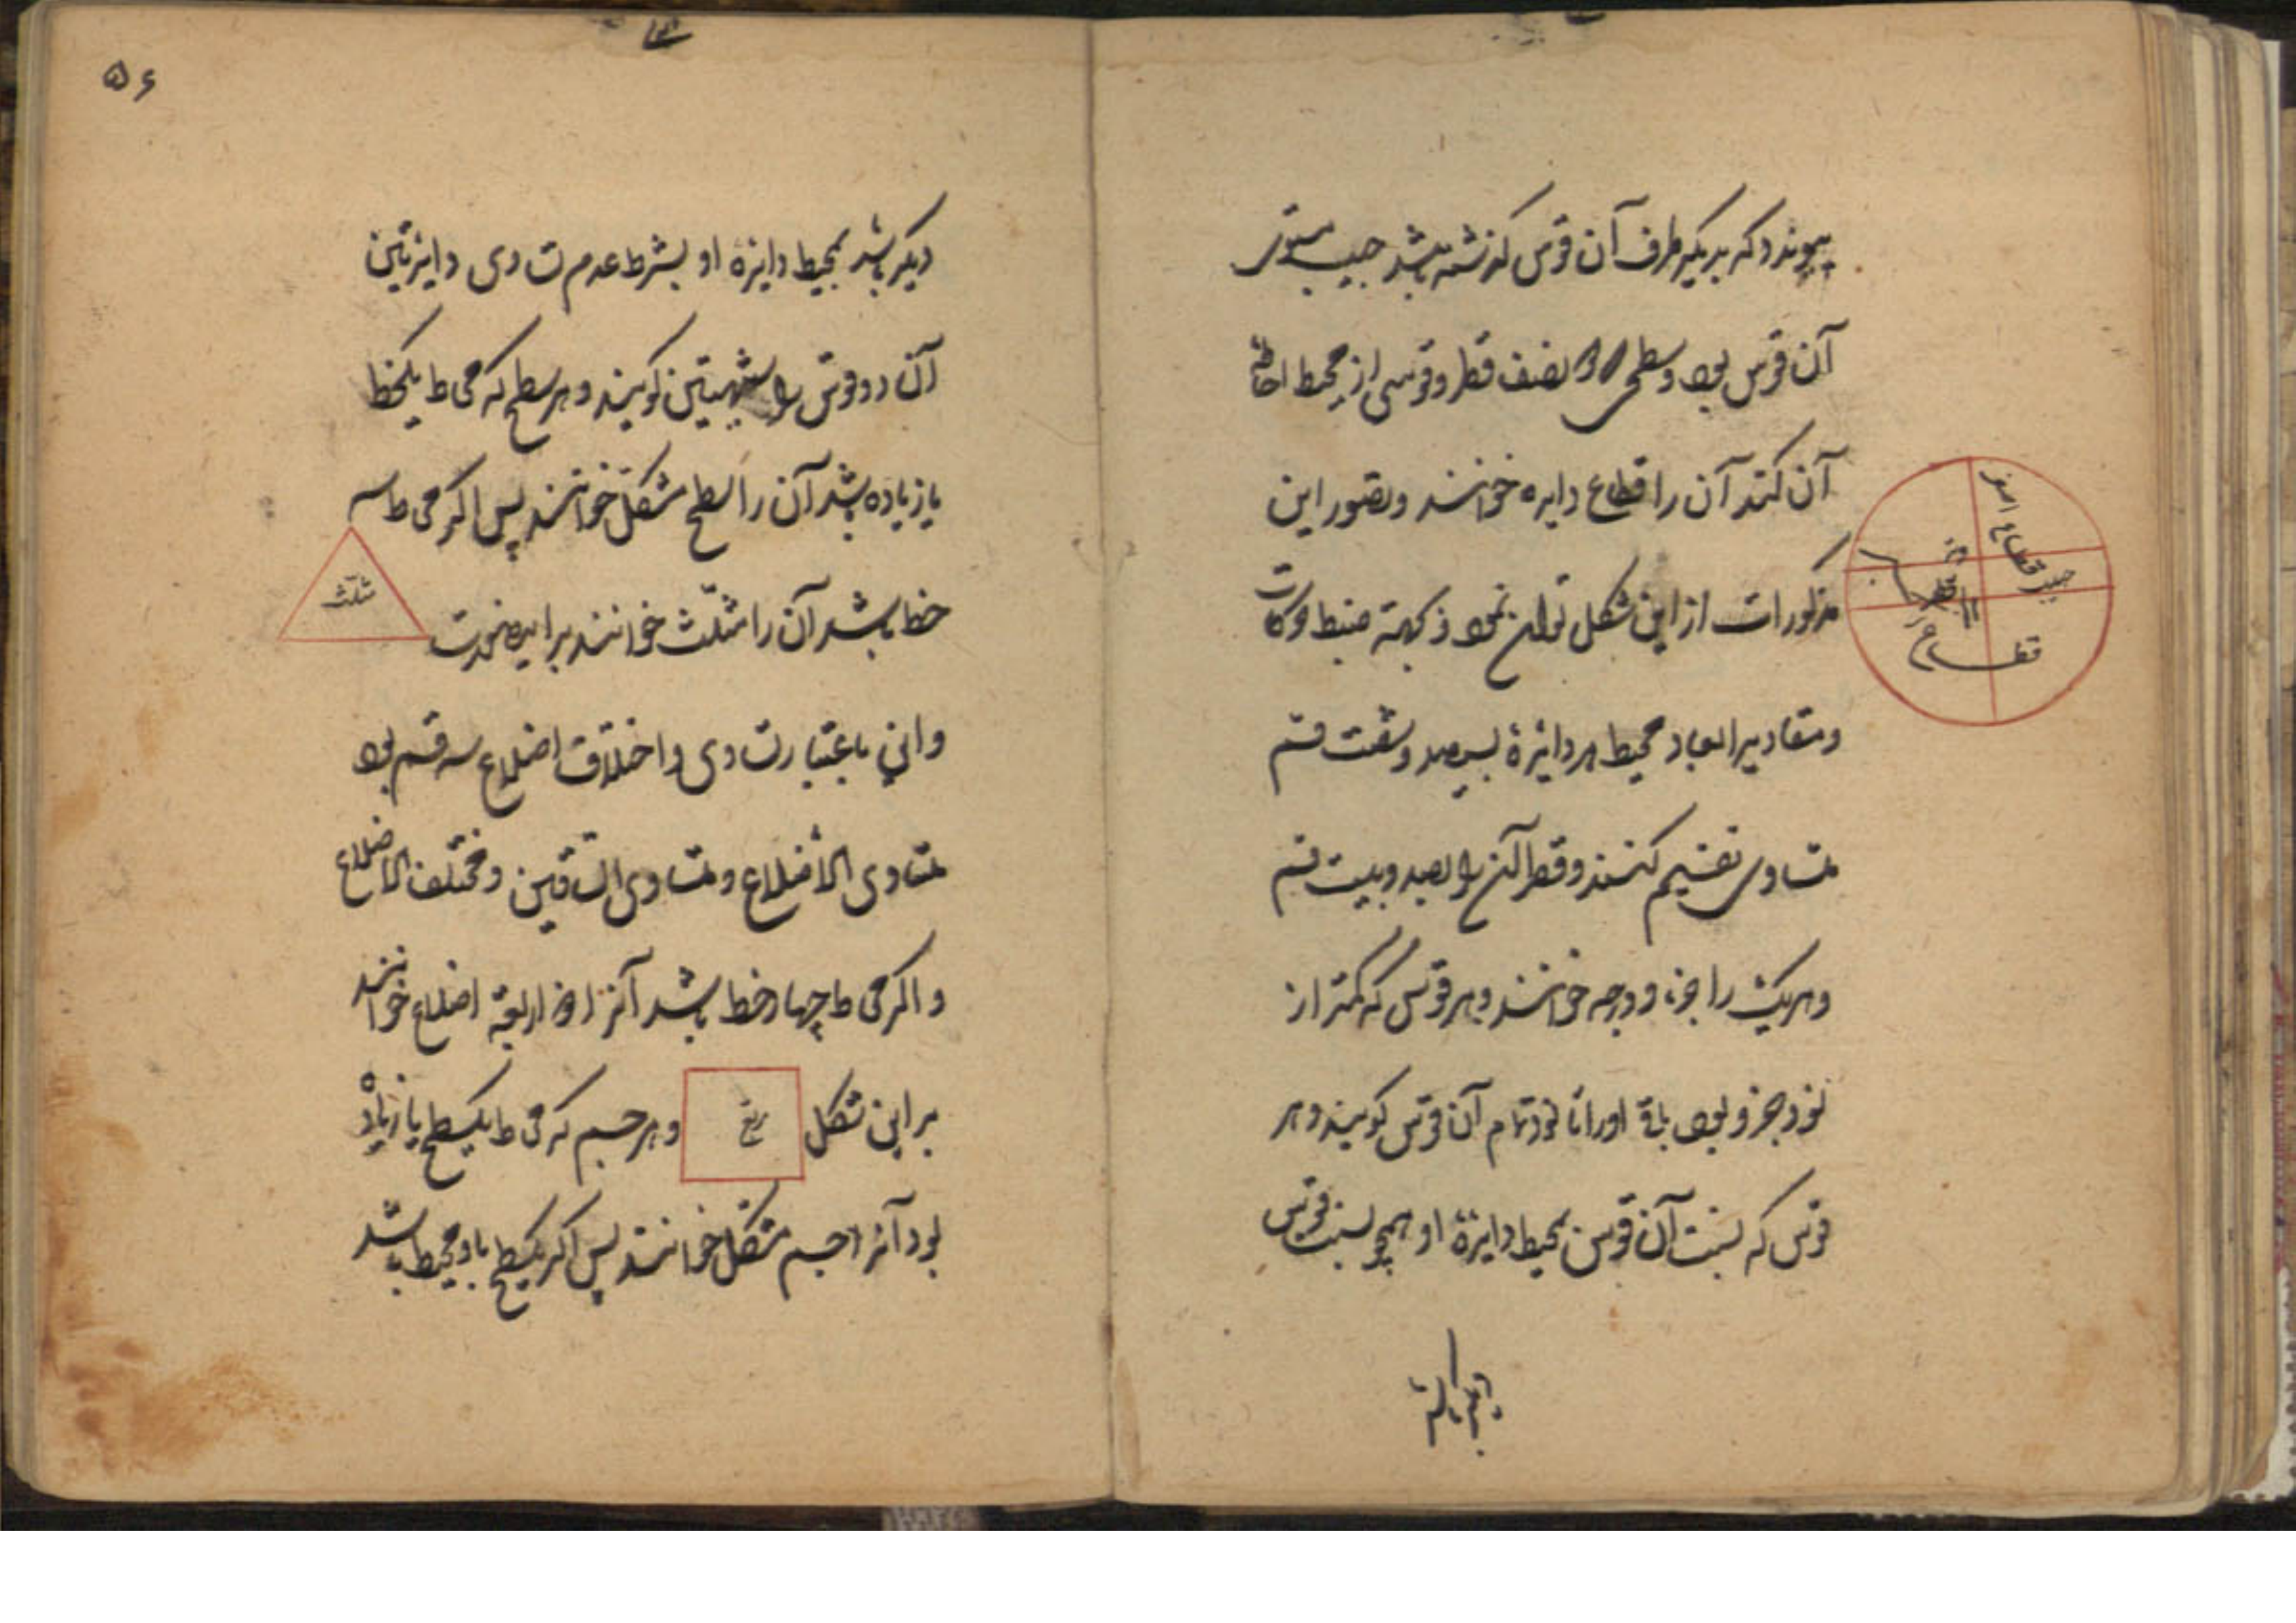 پیوندد که بر یکطرف آن قوس گذشته باشد جیب مستوی
آن قوس بود و سطحی را که نصف قطر و قوسی از محیط احاطه
آن کنند آن را قطاع دایره خوانند و تصور این
مذکورات ازین شکل توان نمود و بجهة ضبط حرکات
و مقادیر ابعاد محیط هر دایرۀ بسیصد و شصت قسم
متساوی تقسیم کنند و قطر آن را بصد و بیست قسم
و هر یک را جزء و درجه خوانند و هر قوس که کمتر از
نود جزو بود باقی او را تا نود تمام آن قوس گویند و هر
قوس که نسبت آن قوس بمحیط دایرۀ او همچو نسبت قوس
قطاع اصغر
قطاع
۵۶
دیگر باشد بمحیط دایرۀ او بشرط عدم تساوی دایرتین
آن دو قوس را شبیهتین گویند و هر سطح که محاط بیکخط
یا زیاده باشد آن را سطح مشکل خوانند پس اگر محاط سه
خط باشد آن را مثلّث خوانند براینصورت
مثلث
و این باعتبار تساوی و اختلاف اضلاع سه قسم بود
متساوی الاضلاع و متساوی الساقین و مختلف الاضلاع
و اگر محاط چهار خط باشد آنرا ذو اربعة اضلاع خوانند
بر این شکل مربع و هر جسم که محاط بیکسطح یا زیاده
بود آنرا جسم مشکل خوانند پس اگر یکسطح باو محیط باشد